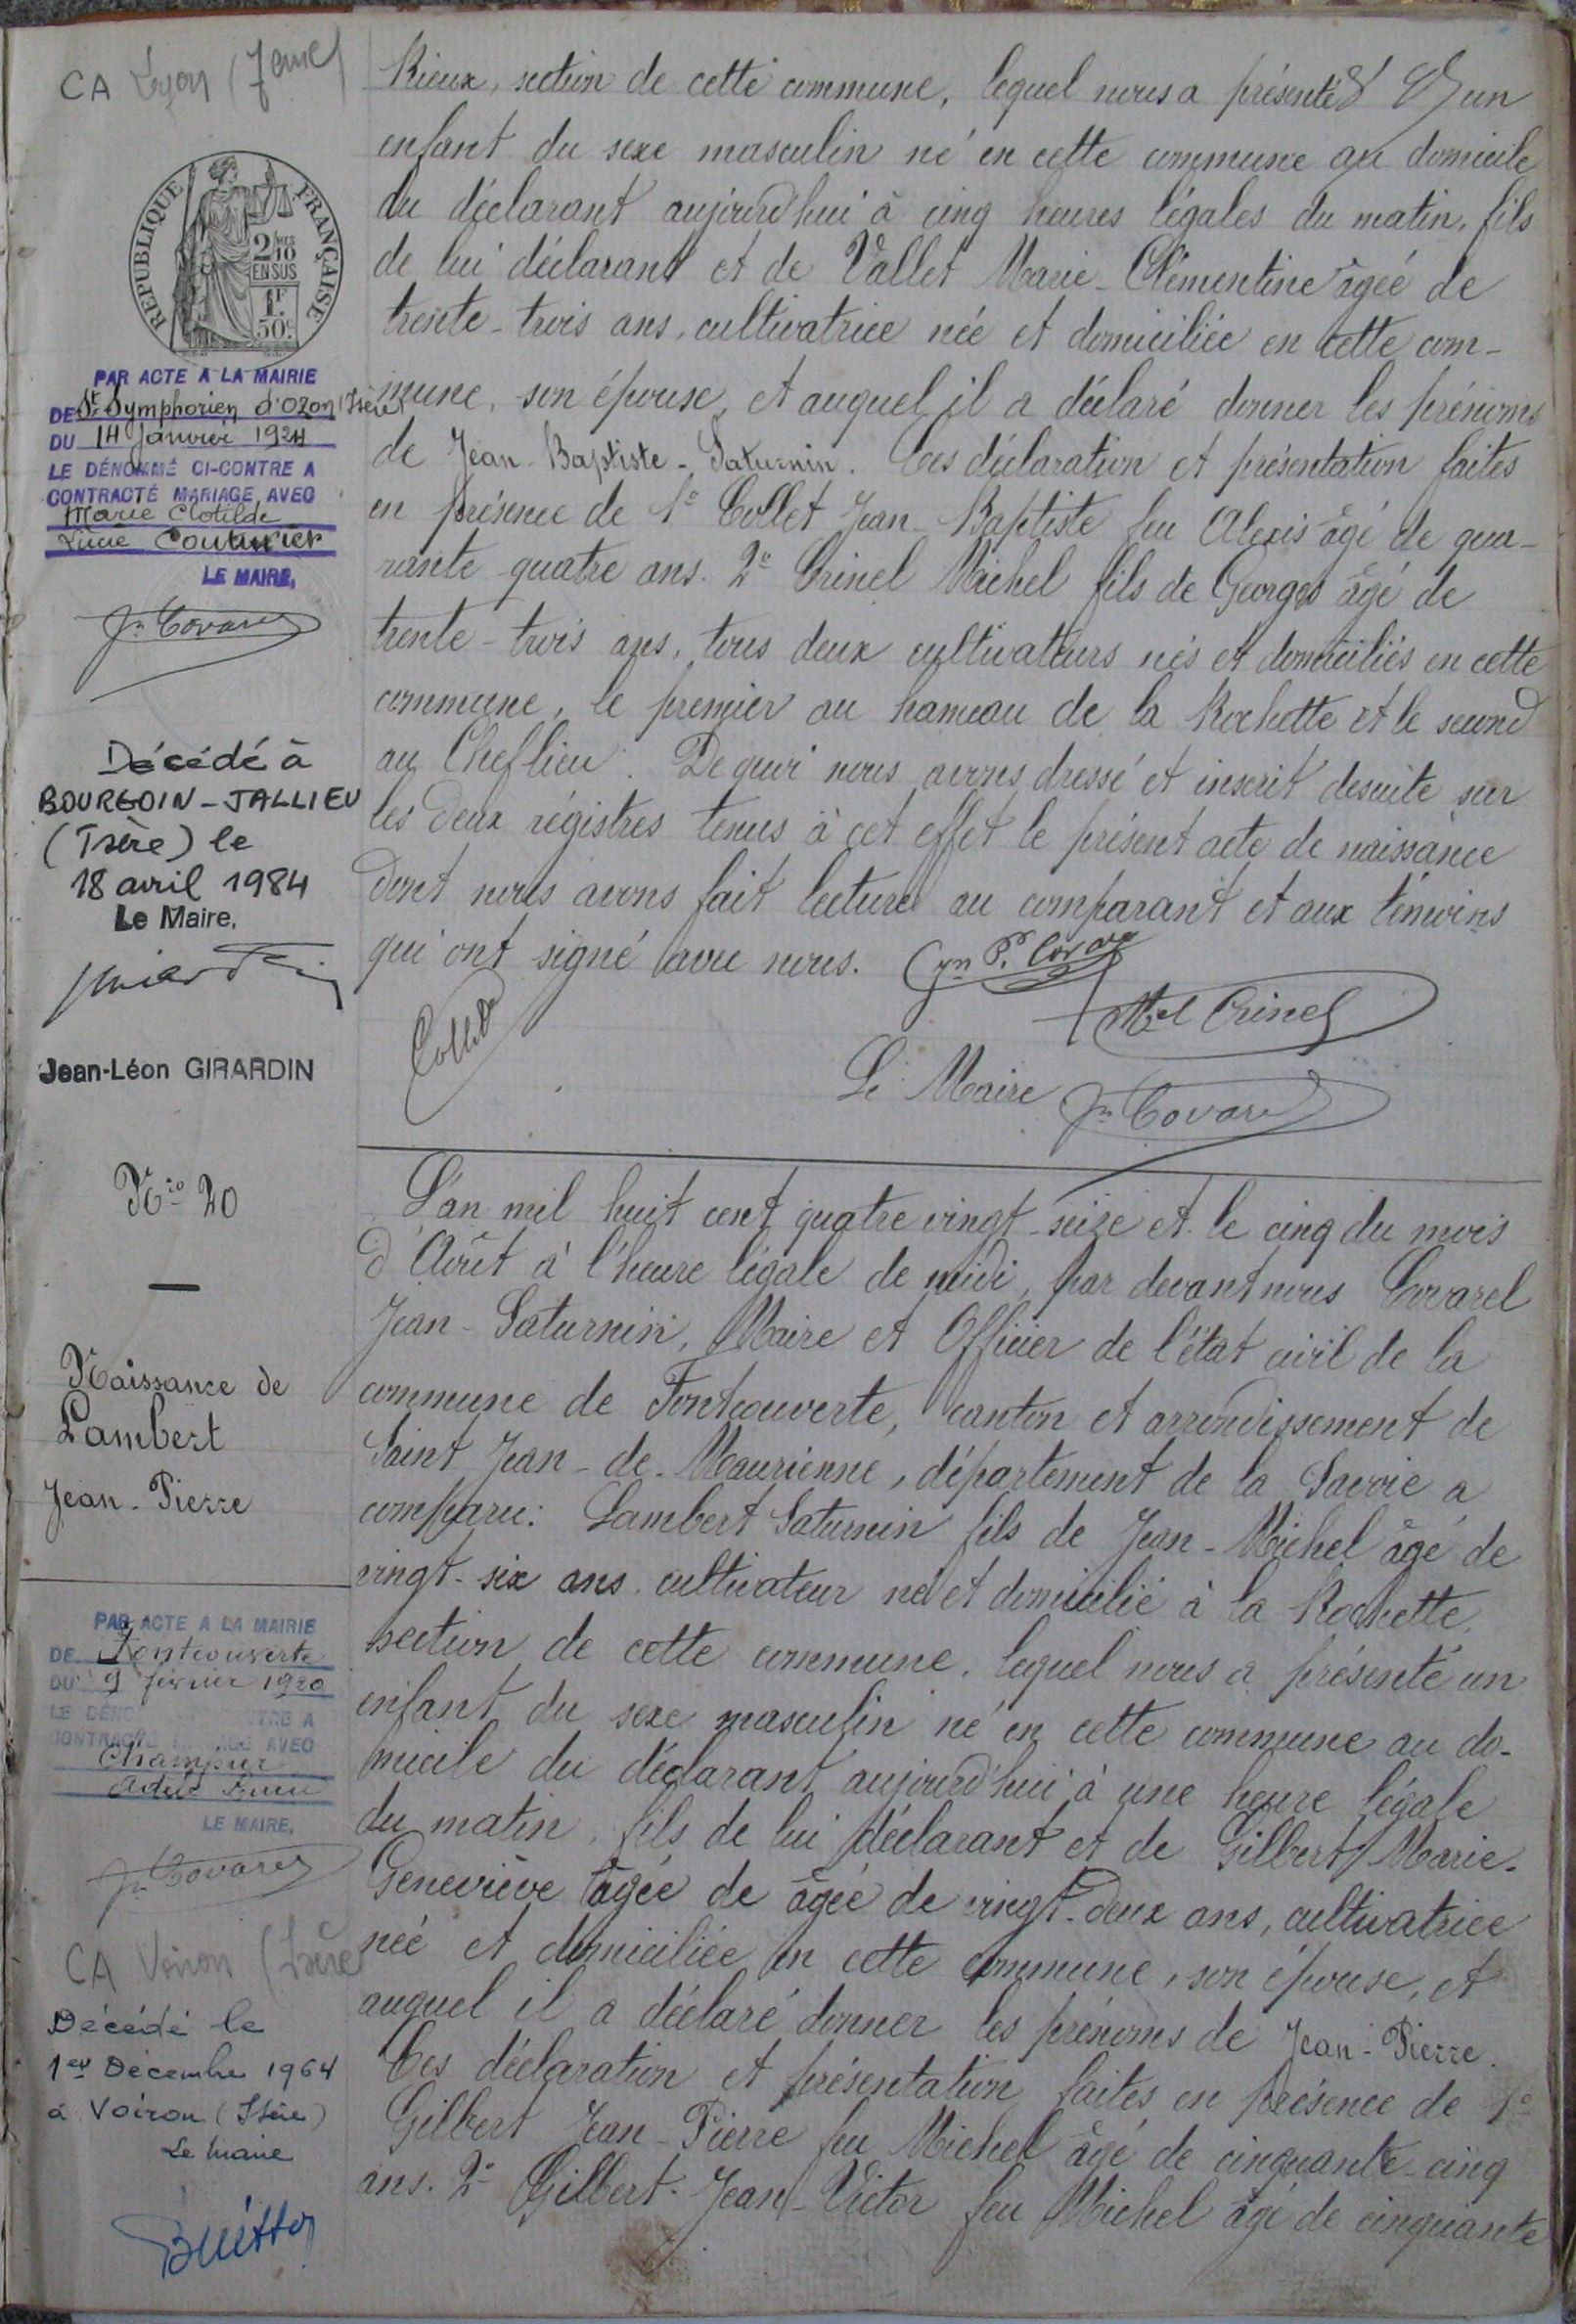 CA Lyon (7eme)
RÉPUBLIQUE FRANÇAISE
2/10MES
EN SUS
1F.
50c
PAR ACTE A LA MAIRIE
DE St Symphorien d'Ozon (Isère)
DU 14 Janvier 1924
LE DÉNOMMÉ CI-CONTRE A
CONTRACTÉ MARIAGE AVEC
Marie Clotilde
Lucie Couturier
LE MAIRE,
Jn Covarel
Décédé à
BOURGOIN-JALLIEU
(Isère) le
18 avril 1984
Le Maire,
Jean-Léon GIRARDIN
Rieux, section de cette commune, lequel nous a présenté un
enfant du sexe masculin né en cette commune au domicile
du déclarant aujourd'hui à cinq heures légales du matin, fils
de lui déclarant et de Vallet Marie-Clémentine âgée de
trente-trois ans, cultivatrice née et domiciliée en cette com-
mune, son épouse, et auquel il a déclaré donner les prénoms
de Jean-Baptiste-Saturnin. Ces déclaration et présentation faites
en présence de 1° Collet Jean-Baptiste feu Alexis âgé de qua-
rante-quatre ans. 2° Crinel Michel fils de Georges âgé de
trente-trois ans, tous deux cultivateurs nés et domiciliés en cette
commune, le premier au hameau de la Rochette et le second
au Cheflieu. De quoi nous avons dressé et inscrit desuite sur
les deux régistres tenus à cet effet le présent acte de naissance
dont nous avons fait lecture au comparant et aux témoins
qui ont signé avec nous.
Collet
Mel Crinel
Le Maire Jn Covarel
Nro 20
Naissance de
Lambert
Jean-Pierre
PAR ACTE A LA MAIRIE
DE Fontcouverte
DU 9 février 1920
LE DÉNO CONTRE A
CONTRACTÉ MARIAGE AVEC
LE MAIRE,
Jn Covarel
CA Voiron (Isère
Décédé le
1er Décembre 1964
à Voiron (Isère)
Le Maire
L'an mil huit cent quatre vingt-seize et le cinq du mois
d'Août à l'heure légale de midi, par devant nous Covarel
Jean-Saturnin, Maire et Officier de l'état civil de la
commune de Fontcouverte, canton et arrondissement de
Saint Jean-de-Maurienne, département de la Savoie a
comparu: Lambert Saturnin fils de Jean-Michel âgé de
vingt-six ans cultivateur né et domicilié à la Rochette,
section de cette commune, lequel nous a présenté un
enfant du sexe masculin né en cette commune au do-
micile du déclarant aujourd'hui à une heure légale
du matin, fils de lui déclarant et de Gilbert Marie-
Geneviève âgée de âgée de vingt-deux ans, cultivatrice
née et domiciliée en cette commune, son épouse, et
auquel il a déclaré donner les prénoms de Jean-Pierre.
Ces déclaration et présentation faites en présence de 1°
Gilbert Jean-Pierre feu Michel âgé de cinquante-cinq
ans. 2° Gilbert Jean-Victor feu Michel âgé de cinquante